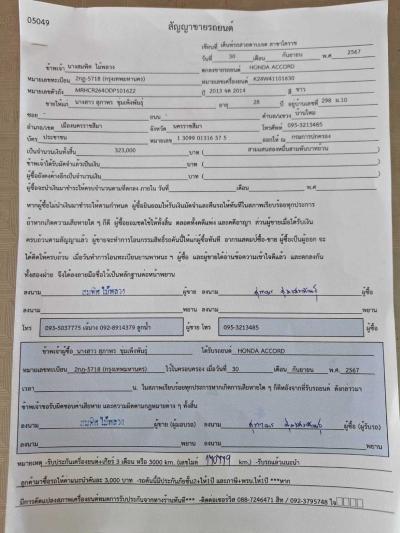 05049
สัญญาขายรถยนต์
เขียนที่ เต็นท์รถสวยตาบงเจต สาขาโคราช
วันที่ 30 เดือน กันยายน พ.ศ 2567
ข้าพเจ้า นางสมทิศ ไม้พลวง ตกลงขายรถยนต์ HONDA ACCORD
หมายเลขทะเบียน 2กฎ-5718 (กรุงเทพมหานคร) หมายเลขเครื่องยนต์ K24W41101630
หมายเลขตัวถัง MRHCR2640DP101622 ปี 2013 จด 2014 สี ขาว
ขายให้แก่ นางสาว สุภาพร ชุมเพ็งพันธุ์ อายุ 28 ปี อยู่บ้านเลขที่ 298 ม.10
ซอย - ถนน - ตำบล/แขวง บ้านโพธ
อำเภอ/เขต เมืองนครราชสีมา จังหวัด นครราชสีมา โทรศัพท์ 095-3213485
บัตร ประชาชน หมายเลข 1 3099 01316 37 5 ออกให้ ณ กรมการปกครอง
เป็นจำนวนเงินทั้งสิ้น 323,000 บาท ( สามแสนสองหมื่นสามพันบาทถ้วน )
ข้าพเจ้าได้รับมัดจำแล้วเป็นเงิน บาท ( )
ผู้ซื้อยังคงค้างอีกเป็นจำนวนเงิน บาท ( )
ผู้ซื้อจะนำเงินมาชำระให้ครบจำนวนตามที่ตกลง ภายใน วันที่ เดือน พ.ศ.
หากผู้ซื้อไม่นำเงินมาชำระให้ตามกำหนด ผู้ซื้อยินยอมให้ริบเงินมัดจำและคืนรถให้ทันทีในสภาพเรียบร้อยทุกประการ
ถ้าหากเกิดความเสียหายใด ๆ ก็ดี ผู้ซื้อยอมชดใช้ให้ทั้งสิ้น ตลอดทั้งคดีแพ่ง และคดีอาญา ส่วนผู้ขายเมื่อได้รับเงิน
ครบถ้วนตามสัญญาแล้ว ผู้ขายจะทำการโอนกรรมสิทธิ์รถคันนี้ให้แก่ผู้ซื้อทันที อากรแสตมป์ซื้อ-ขาย ผู้ซื้อเป็นผู้ออก จะ
ได้คิดให้ครบถ้วน เมื่อวันทำการโอนทะเบียนยานพาหนะ ฯ ผู้ซื้อ และผู้ขายได้อ่านข้อความเข้าใจดีแล้ว และตกลงกัน
ทั้งสองฝ่าย จึงได้ลงลายมือชื่อไว้เป็นหลักฐานต่อหน้าพยาน
ลงนาม สมทิศ ไม้พลวง ผู้ขาย ลงนาม ผู้ซื้อ
ลงนาม พยาน ลงนาม พยาน
โทร 093-5037775 เจ้นาง 092-8914379 ลูกน้ำ ผู้ขาย โทร 095-3213485 ผู้ซื้อ
ข้าพเจ้าผู้ซื้อ นางสาว สุภาพร ชุมเพ็งพันธุ์ ได้รับรถยนต์ HONDA ACCORD
หมายเลขทะเบียน 2กฎ-5718 (กรุงเทพมหานคร) ไว้ในครอบครอง เมื่อวันที่ 30 เดือน กันยายน พ.ศ. 2567
เวลา น. ในสภาพเรียบร้อยทุกประการหากเกิดการเสียหายใด ๆ ก็ดีหลังจากที่รับรถยนต์ ดังกล่าวมา
ข้าพเจ้าขอรับผิดชอบค่าเสียหาย และความผิดตามกฎหมายต่าง ๆ ทั้งสิ้น
ลงนาม สมทิศ ไม้พลวง ผู้ขาย (ผู้มอบรถ) ลงนาม ผู้ซื้อ (ผู้รับรถ)
ลงนาม พยาน ลงนาม พยาน
หมายเหตุ -รับประกันเครื่องยนต์+เกียร์ 3 เดือน หรือ 3000 km. (เลขไมค์ km.) -รับรถแล้วแนะนำ
ลูกค้ามาซื้อรถให้ค่าแนะนำคันละ 3,000 บาท -รถคันนี้มีประกันภัยชั้น2+ให้1ปี และภาษี+พรบ.ให้1ปี ***หาก
มีการดัดแปลงสภาพเครื่องยนต์หมดการรับประกันจากทางร้านทันที** -ติดต่อเซอร์วิส 088-7246471 สิท / 092-3795748 ใจ